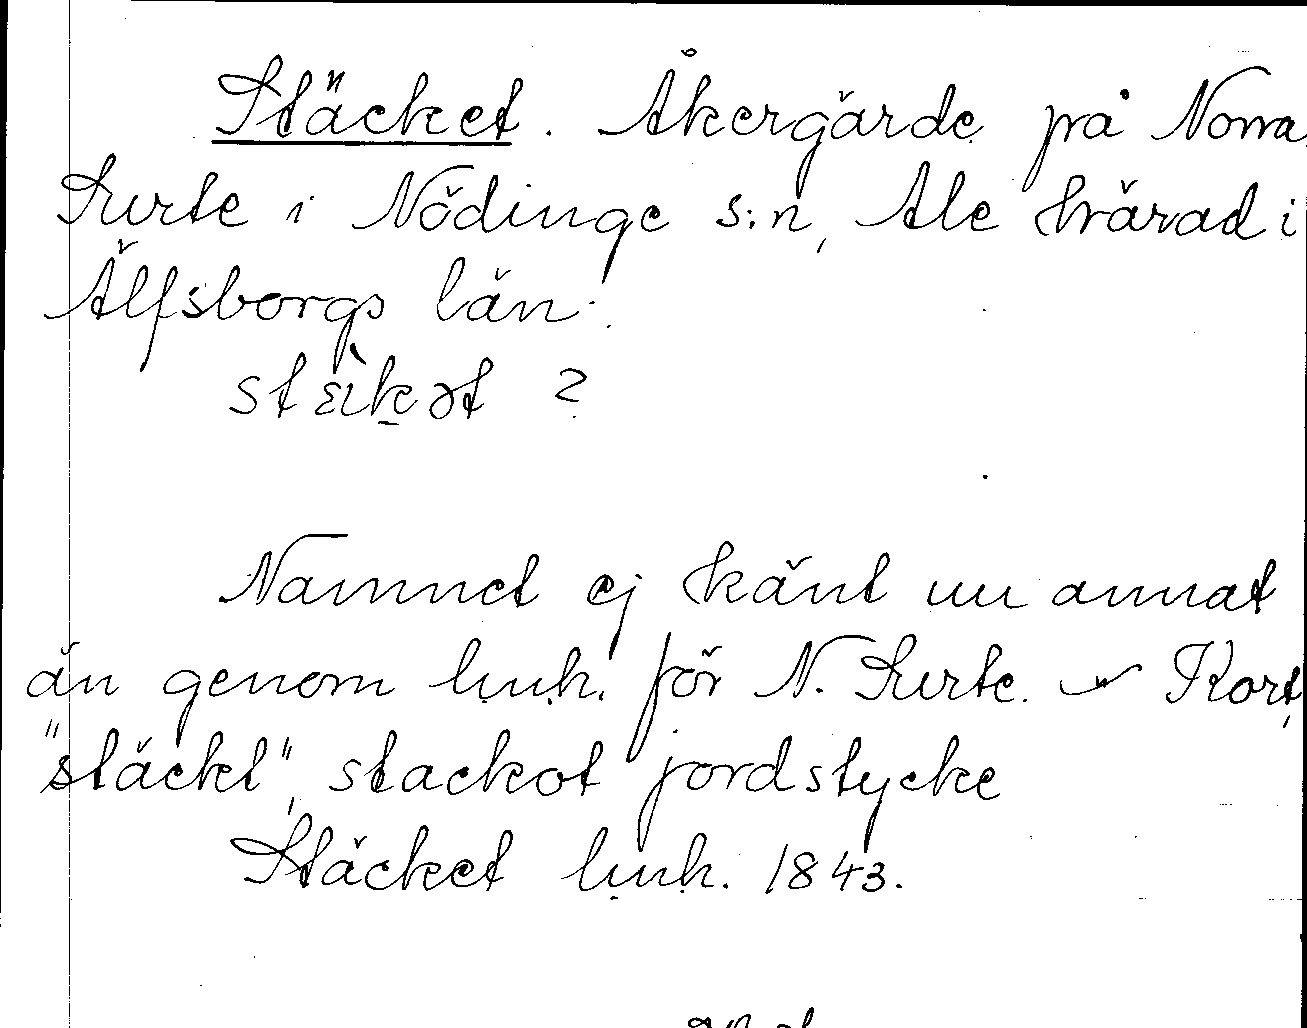 Stäcket. Åkergärde på Norra
Surte i Nödinge s:n, Ale härad i
Älfsborgs län.
stäkət ?
Namnet ej känt nu annat
än genom lmh. för N. Surte. Kort,
"stäckt", stackot jordstycke
Stäcket lmh. 1843.